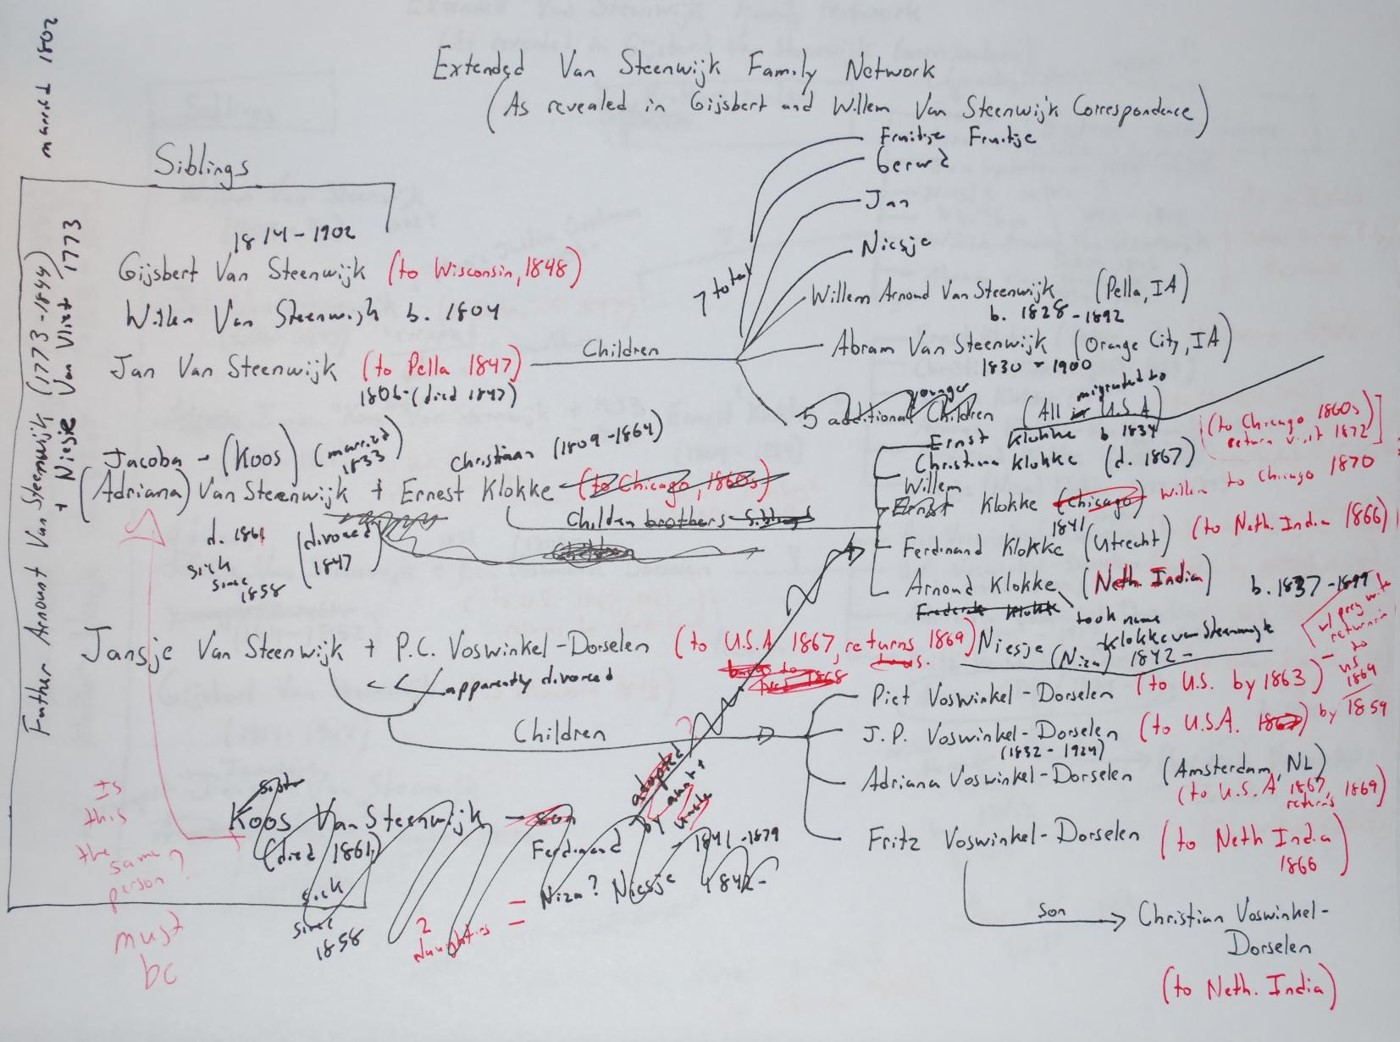 married 1802
Extended Van Steenwijk Family Network
(As revealed in Gijsbert and Willem Van Steenwijk Correspondence)
Siblings
Father Arnount Van Steenwijk (1773-1844)
+ Niesje Van Vliet 1773
1814-1902
Gijsbert Van Steenwijk (to Wisconsin, 1848)
Willem Van Steenwijk b. 1804
Jan Van Steenwijk (to Pella 1847)
1806-(died 1847)
Children
7 total
Fruitje Fruitje
Gerard
Jan
Niesje
Willem Arnoud Van Steenwijk (Pella, IA)
b. 1828-1892
Abram Van Steenwijk (Orange City, IA)
1830-1900
younger
5 additional Children (All in U.S.A)
migrated to
Jacoba - (Koos) (married 1833)
(Adriana) Van Steenwijk + Ernest Klokke (to Chicago, 1860s)
Christiaan (1809-1864)
d. 1861
sick
since
1858
(divorced
1847)
Children brothers Siblings
Children
Ernst Klokke b. 1834
(to Chicago 1860s)
return visit 1872
Christina Klokke (d. 1867)
Willem
Ernst Klokke (Chicago) Willem to Chicago 1870
1841
Ferdinand Klokke (Utrecht) (to Neth. India 1866)
Arnoud Klokke (Neth. India) b. 1837-1899
Frederik Klokke
took name
Klokke van Steenwijk
Niesje (Niza) 1842-
Jansje Van Steenwijk + P.C. Voswinkel-Dorselen (to U.S.A 1867, returns 1869)
apparently divorced
Children
Piet Voswinkel-Dorselen (to U.S. by 1863)
w/ preg wife
returning
to
US
1869
J.P. Voswinkel-Dorselen (to U.S.A. 1867) by 1859
(1832-1924)
Adriana Voswinkel-Dorselen (Amsterdam, NL)
(to U.S.A 1867,
returns 1869)
Fritz Voswinkel-Dorselen (to Neth India
1866)
son
Christian Voswinkel-
Dorselen
(to Neth. India)
adopted
by aunt +
uncle
?
sister
Koos Van Steenwijk - son
(died 1861)
sick
since
1858
Ferdinand - 1841-1879
2
daughters = Niza? Niesje 1842-
Is
this
the same
person?
must
be